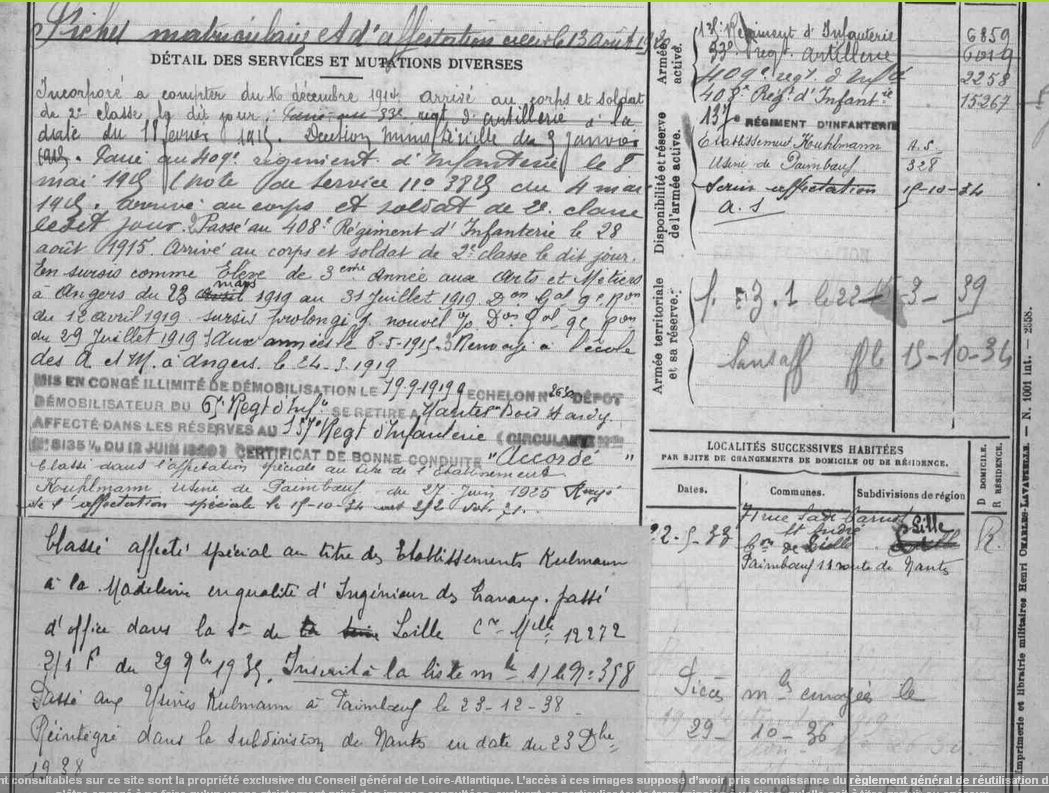 Fiches matriculaire et d'affectation créées le 13 août 19
DÉTAIL DES SERVICES ET MUTATIONS DIVERSES
Incorporé à compter du 16 décembre 1914 arrivé au corps et soldat
de 2e classe le dit jour. Passé au 33e regt d'artillerie à la
date du 1er janvier 1915 Décision ministérielle du 3 janvier
1915. Passé au 409e régiment d'Infanterie le 8
mai 1915 (note de service no 3825 du 4 mai
1915. Arrivé au corps et soldat de 2e classe
ledit jour. Passé au 408e Régiment d'Infanterie le 28
août 1915. Arrivé au corps et soldat de 2e classe le dit jour.
En sursis comme Elève de 3ème Année aux Arts et Métiers
à Angers du 23 mars 1919 au 31 Juillet 1919. Don Gal 9e Ron
du 12 avril 1919 sursis prolongé
du 29 Juillet 1919. Aux armées le 8-5-1915. Renvoyé à l'école
des A et M. à Angers. le 24-3-1919
MIS EN CONGÉ ILLIMITÉ DE DÉMOBILISATION LE 19.9.1919 ECHELON No DÉPOT
DÉMOBILISATEUR DU 65e Regt d'Inf. SE RETIRE A Nantes Bois Hardy
AFFECTÉ DANS LES RÉSERVES AU 137e Regt d'Infanterie (CIRCULAIRE
DU 12 JUIN CERTIFICAT DE BONNE CONDUITE "Accordé"
Classé dans l'affectation spéciale au titre de l'Etablissement
Kuhlmann Usine de Paimbœuf du 27 Juin 1925 Rayé
de l'affectation spéciale le 15-10-34
Classé affecté spécial au titre des Etablissements Kulmann
à la Madeleine en qualité d'Ingénieur des travaux. passé
d'office dans la son de Lille Cre Mlle 12272
2/1 F du 29 9bre 1935. Inscrit à la liste mle
Passé aux Usines Kulmann à Paimbœuf le 23-12-38
Réintégré dans la subdivision de Nantes en date du 23 Dbre
1938
Armée active.
Régiment d'Infanterie 6859
33e regt artillerie 6019
409e regt. d'Infie 2258
408e Régt d'Infantie 15267
Disponibilité et réserve de l'armée active.
137e RÉGIMENT D'INFANTERIE
Etablissement Kuhlmann A.S.
Usine de Paimbœuf 328
Sans affectation 15-10-34
A.S
Armée territoriale et sa réserve.
3-39
Sans aff 15-10-34
LOCALITÉS SUCCESSIVES HABITÉES
PAR SUITE DE CHANGEMENTS DE DOMICILE OU DE RÉSIDENCE.
Dates. Communes. Subdivisions de région D DOMICILE. R RÉSIDENCE.
71 rue Sadi Carnot
St André Lille
22-5-33 Con de Lille R.
Paimbœuf 11 route de Nantes
Pièces mles envoyées le
29-10-36
Imprimerie et librairie militaires Henri CHARLES-LAVAUZELLE. — N. 1001 int. — 2558.
nt consultables sur ce site sont la propriété exclusive du Conseil général de Loire-Atlantique. L'accès à ces images suppose d'avoir pris connaissance du règlement général de réutilisation d